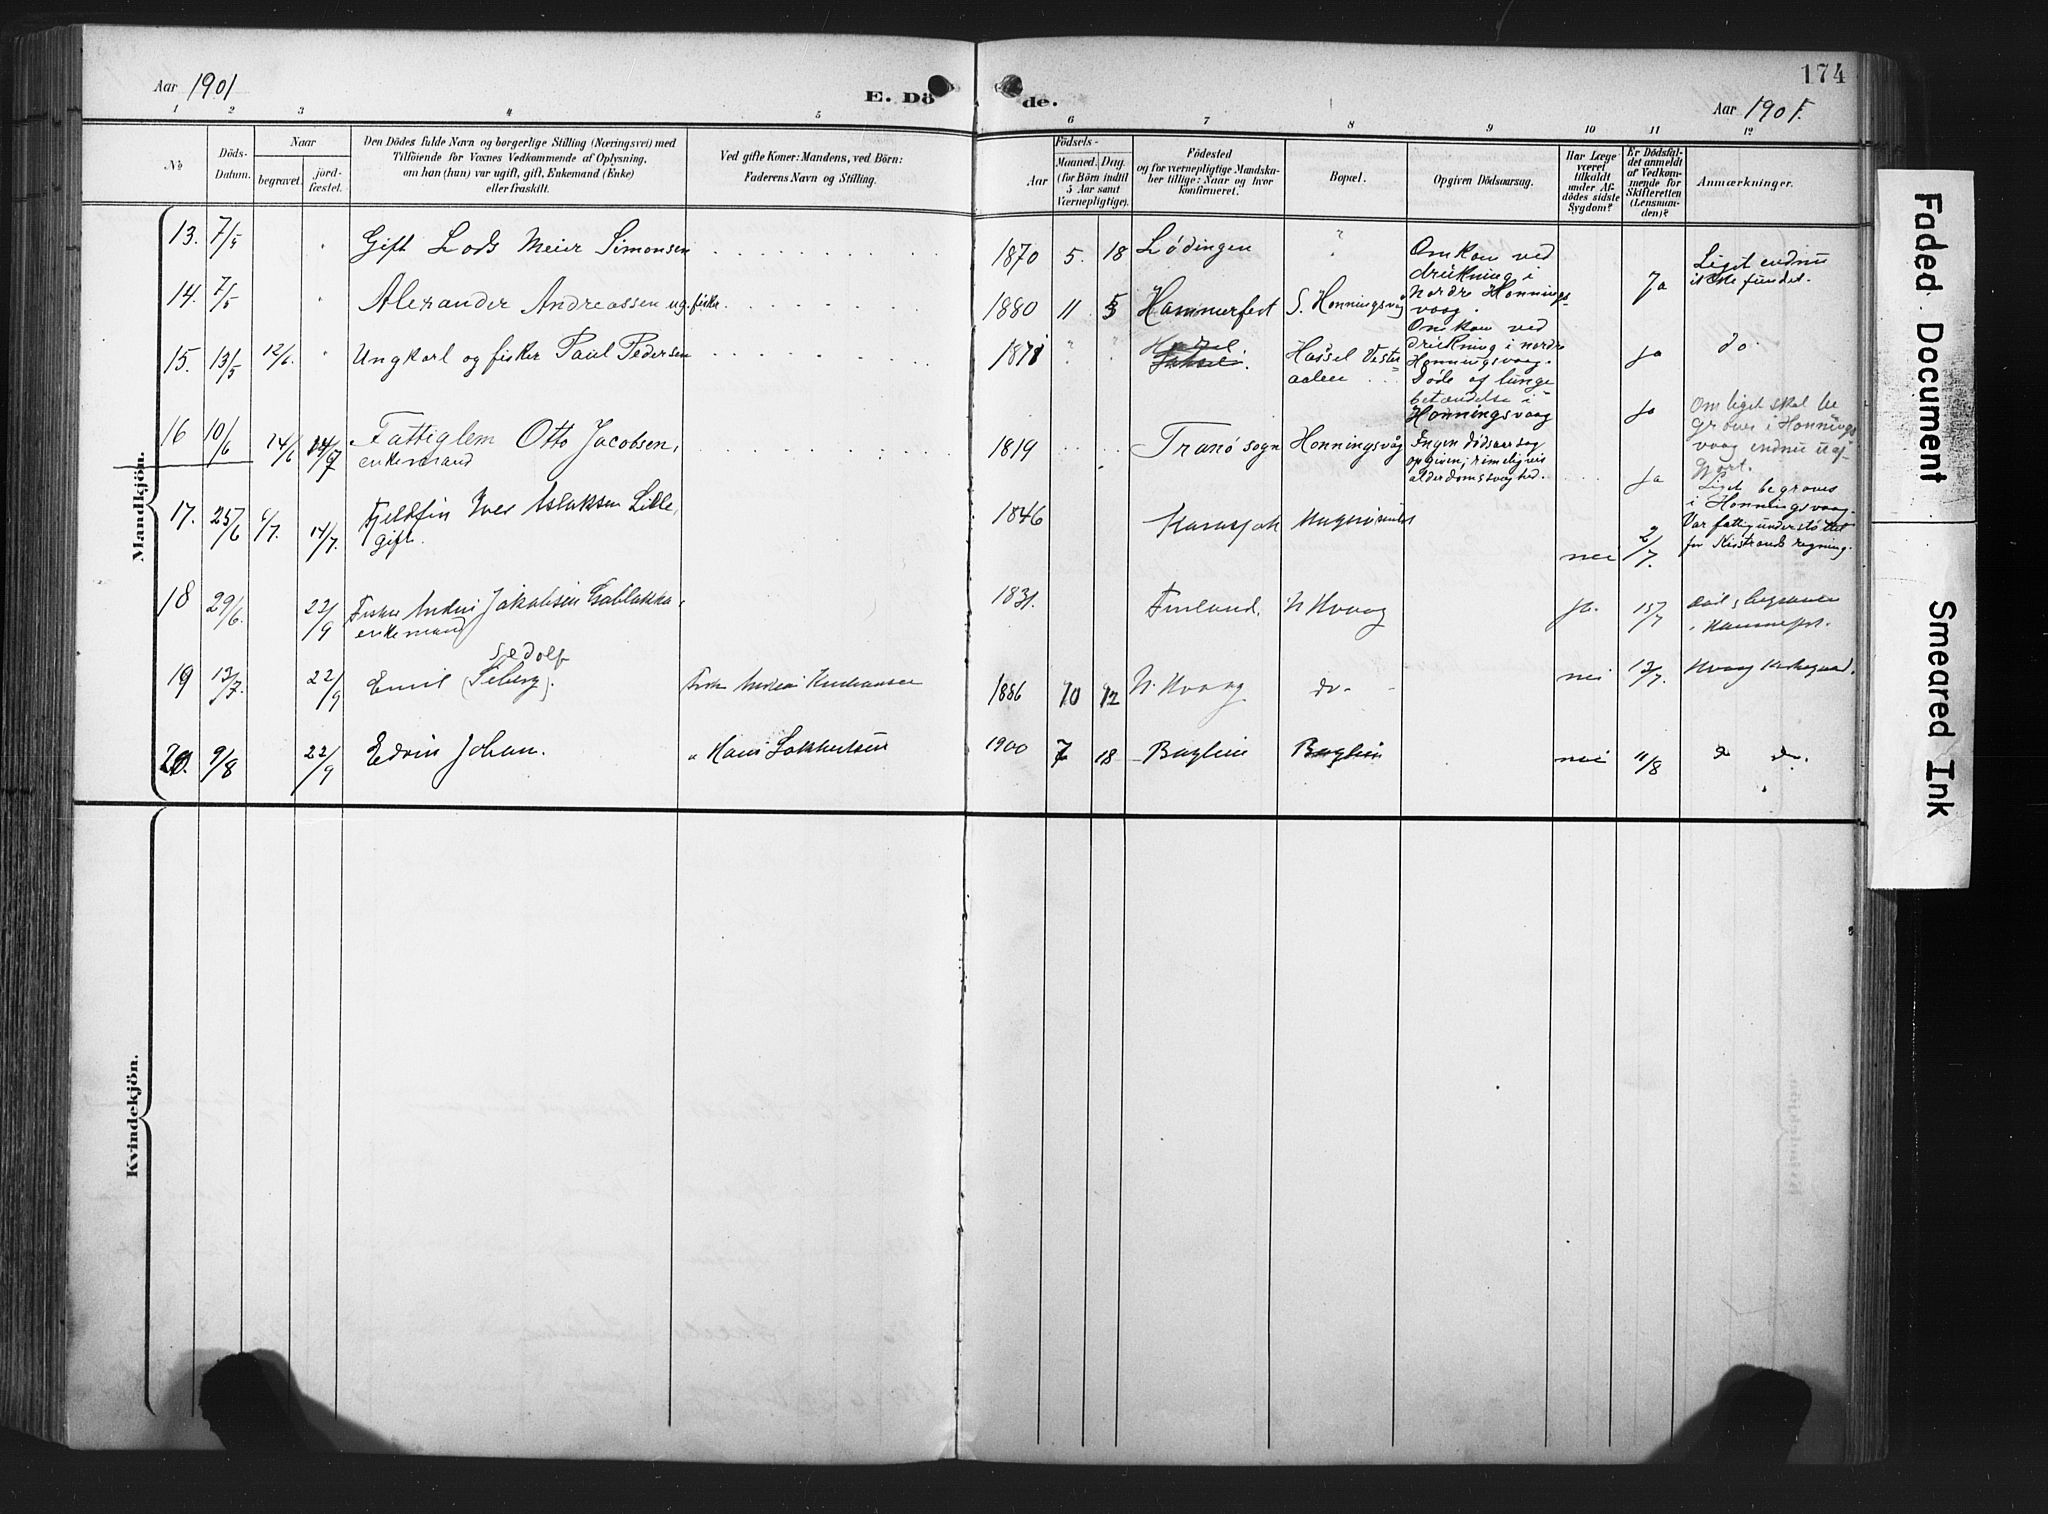 Aar 1901
E. Dö
de.
174
Aar 1901.
1 2 3 4 5 6 7 8 9 10 11 12
No
Döds-Datum.
Naar
begravet.
jord-fæstet.
Den Dödes fulde Navn og borgerlige Stilling (Næringsvei) med
Tilföiende for Voxnes Vedkommende af Oplysning,
om han (hun) var ugift, gift, Enkemand (Enke)
eller fraskilt.
Ved gifte Koner: Mandens, ved Börn:
Faderens Navn og Stilling.
Födsels-
Aar
Maaned. Dag.
(for Börn indtil
5 Aar samt
Værnepligtige).
Födested
og for værnepligtige Mandska-
ber tillige: Naar og hvor
konfirmeret.
Bopæl.
Opgiven Dödsaarsag.
Har Læge
været
tilkaldt
under Af-
dödes sidste
Sygdom?
Er Dödsfal-
det anmeldt
af Vedkom-
mende for
Skifteretten
(Lensman-
den)?
Anmærkninger.
Mandkjön.
13. 7/5 " Gift Lods Meier Simonsen 1870 5. 18 Lödingen "
Omkom ved
drukning i
Nordre Honnings-
vaag.
Liget endnu
ikke fundet.
14. 7/5 " Alexander Andreassen ug. fisker 1880 11 Hammerfest S. Honningsvåg
Omkom ved
drukning i nordre
Honningsvaag.
Ja
15. 13/5 12/6. Ungkarl og fisker Paul Pedersen 1871 " " Hassel Vester
aalen
Døde af lunge
betændelse i
Honningsvaag
Ja do.
16 10/6 14/6 Fattiglem Otto Jacobsen,
enkemand
1819 Tranö sogn Honningsvåg
Ingen dödsaarsag
opgiven; rimeligvis
alderdomssvaghed.
Ja
Om liget skal be
graves i Honnings
vaag endnu uaf
gjort.
Ja
17. 25/6 4/7. 14/7. Fjeldfin Iver Aslaksen Lille,
gift.
1846 Karasjok
nei 2/7.
Liget begraves
i Honningsvaag.
Var fattigunderstöttet
for Kistrands regning.
18 29/6. 22/9 Fisker Jakobsen
enkemand
1831. Finland. N Hvaag ja. 15/7
19 13/7. 22/9 Emil (Seberg). Sedolf
Fisker
1886 10 12 N. Hvaag do. nei 13/7. Hvaag Kirkegaard.
20. 9/8 22/9 Edvin Johan. " Hans
1900 7 18 nei 11/8 do do.
Kvindekjön.
Faded Document
Smeared Ink